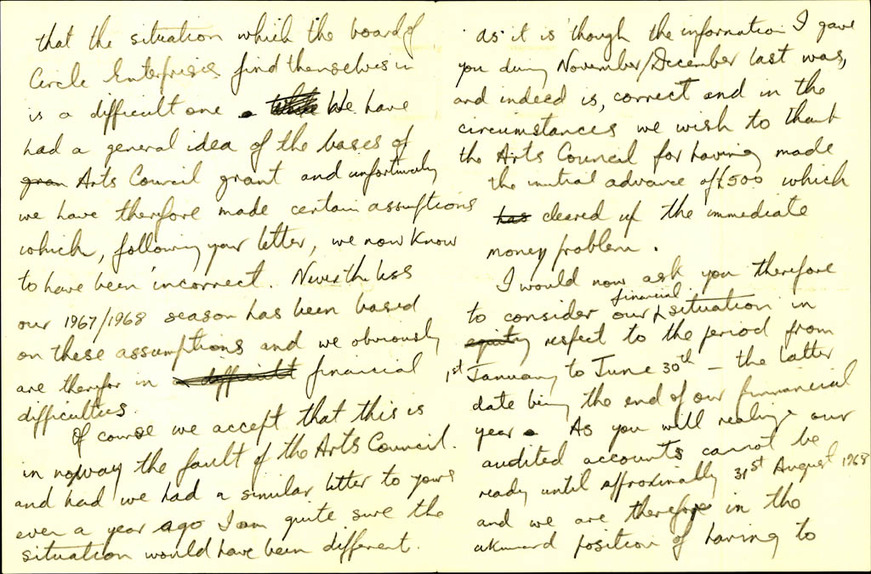 that the situation which the board of
Circle Enterprises find themselves in
is a difficult one. While We have
had a general idea of the bases of
gran Arts Council grant and unfortunately
we have therefore made certain assuptions
which, following your letter, we now know
to have been incorrect. Nevertheless
our 1967/1968 season has been based
on these assumptions and we obviously
are therefor in difficult financial
difficulties.
Of course we accept that this is
in no way the fault of the Arts Council.
and had we had a similar letter to yours
even a year ago I am quite sure the
situation would have been different.
as it is though the information I gave
you during November/December last was,
and indeed is, correct and in the
circumstances we wish to thank
the Arts Council for having made
the initial advance of £500 which
has cleared up the immediate
money problem.
I would now ask you therefore
to consider our financial situation in
equity respect to the period from
1st January to June 30th - the latter
date being the end of our finnancial
year. As you will realize our
audited accounts cannot be
ready until approximately 31st August 1968
and we are therefore in the
akward position of having to